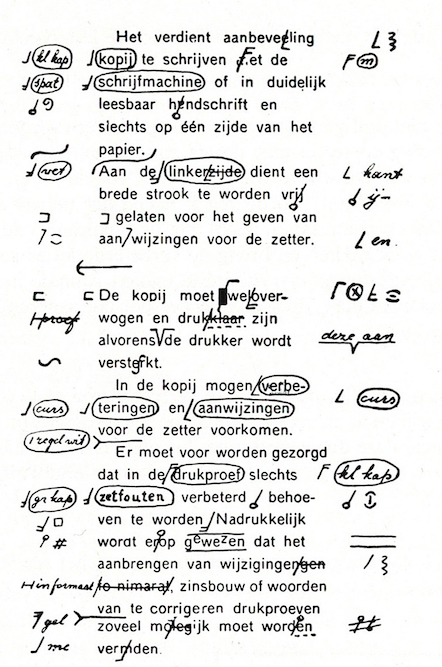 Het verdient aanbeveling
kl kap kopij te schrijven et de F m
spat schrijfmachine of in duidelijk
leesbaar handschrift en
slechts op één zijde van het
papier.
vet Aan de linkerzijde dient een kant
brede strook te worden vrij ij
gelaten voor het geven van
aan wijzingen voor de zetter. en.
De kopij moet wel over-
proef wogen en drukklaar zijn
alvorens de drukker wordt deze aan
versterkt.
In de kopij mogen verbe-
curs teringen en aanwijzingen curs
voor de zetter voorkomen.
1 regel wit
Er moet voor worden gezorgd
dat in de drukproef slechts F kl kap
gr kap zetfouten verbeterd behoe-
ven te worden Nadrukkelijk
# wordt erop gewezen dat het
aanbrengen van wijzigingen/gen
informast to nimarat, zinsbouw of woorden
van te corrigeren drukproeven
gel zoveel mo leg ijk moet worden
me verniden.